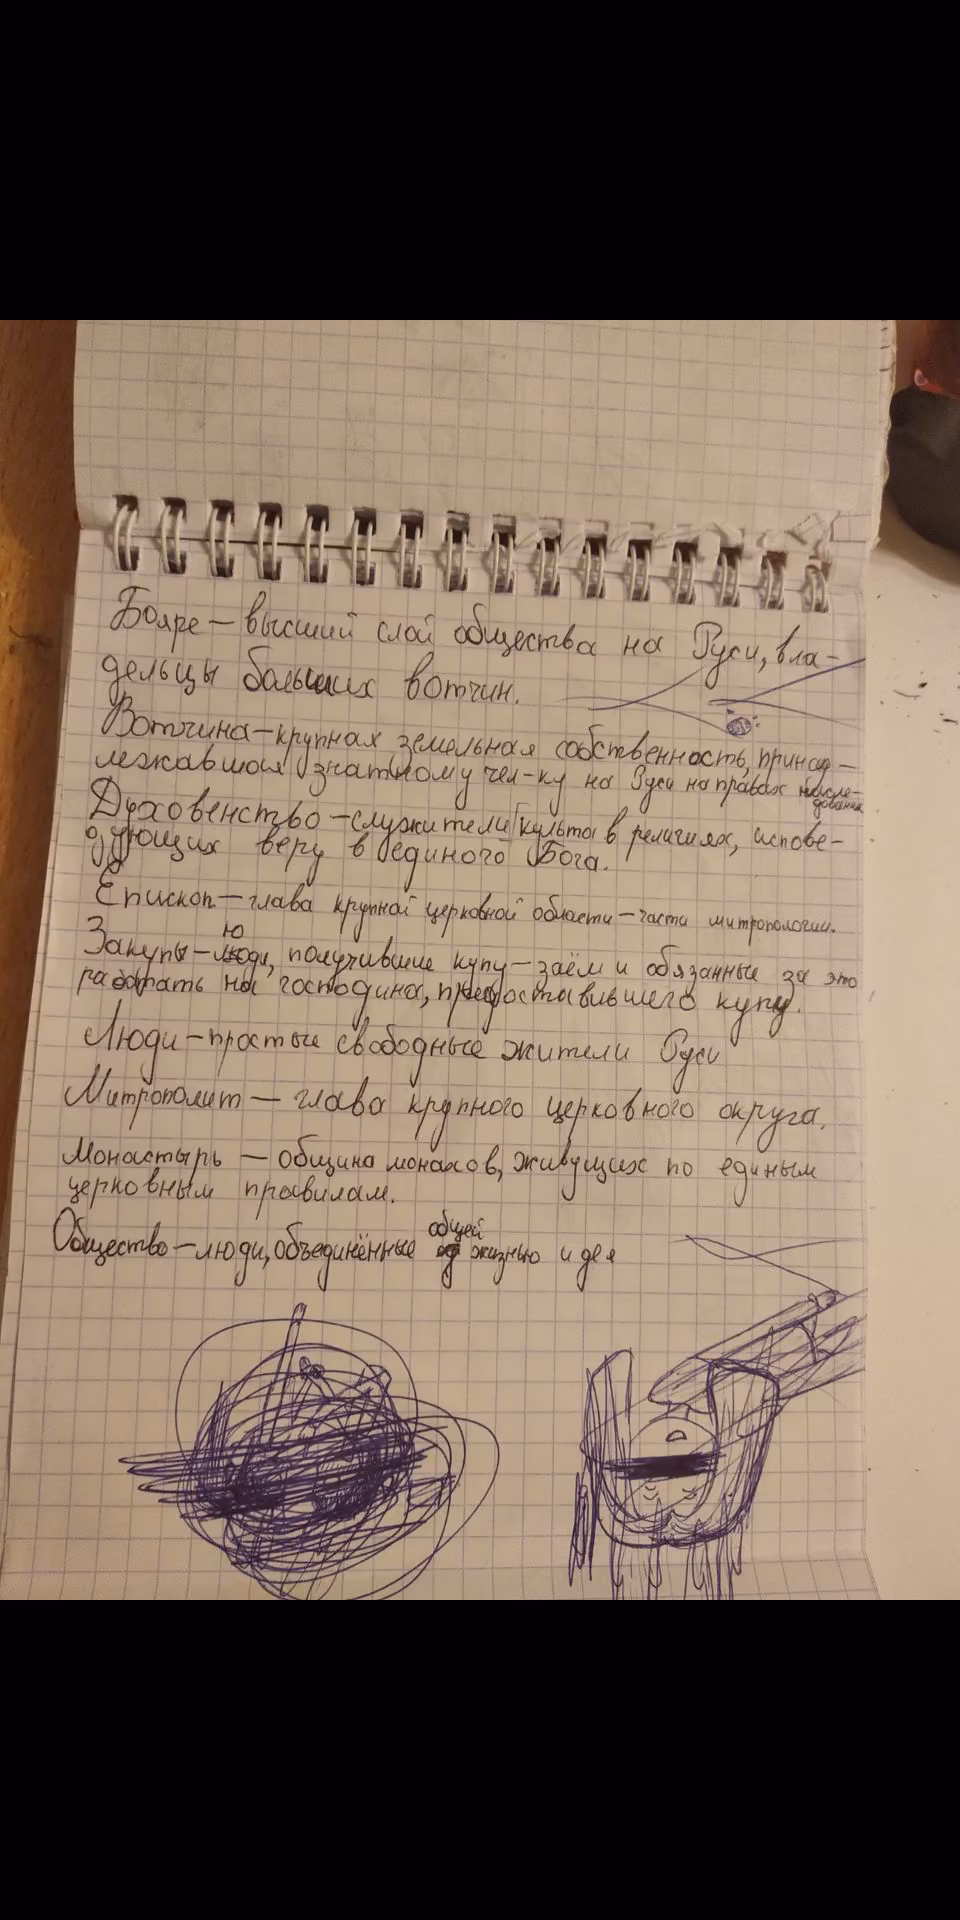 Бояре — высший слой общества на Руси, вла-
дельцы больших вотчин.
Вотчина — крупная земельная собственность, принад-
лежавшая знатному чел-ку на Руси на правах насле-
дования
Духовенство — служители культа в религиях, испове-
дующих веру в единого Бога.
Епископ — глава крупной церковной области — части митрополии.
Закупы — люди, получившие купу — заём и обязанные за это
работать на господина, предоставившего купу.
Люди — простые свободные жители Руси
Митрополит — глава крупного церковного округа.
Монастырь — община монахов, живущих по единым
церковным правилам.
Общество — люди, объединённые общей жизнью и дея